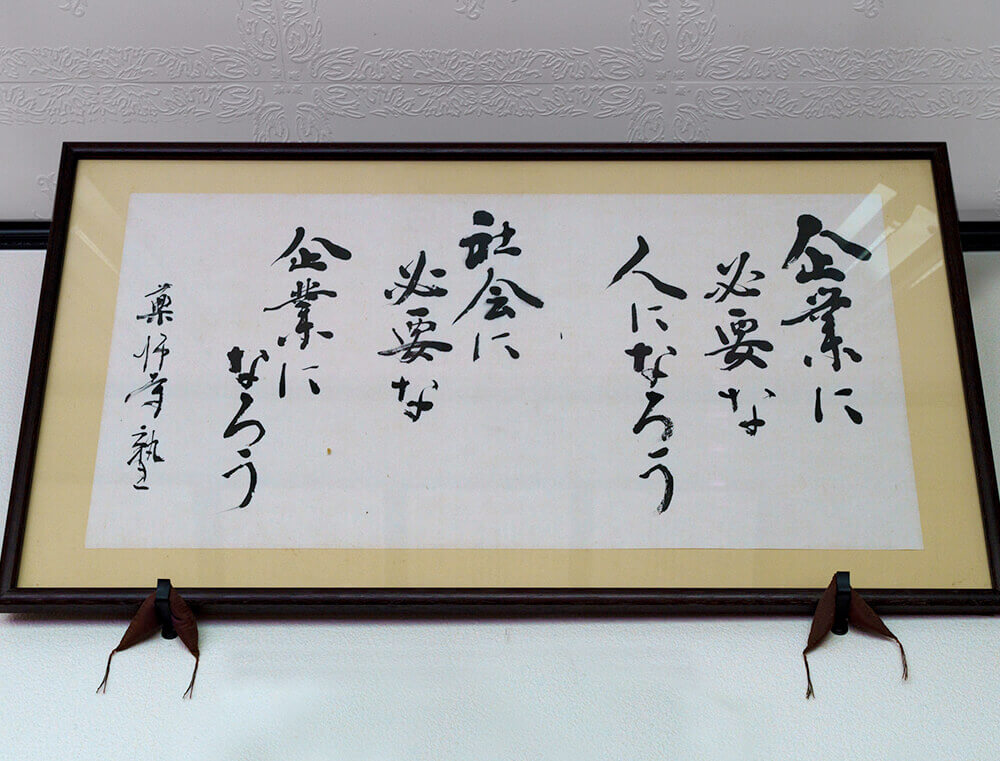 企業に
必要な
人になろう
社会に
必要な
企業に
なろう
薬師寺塾